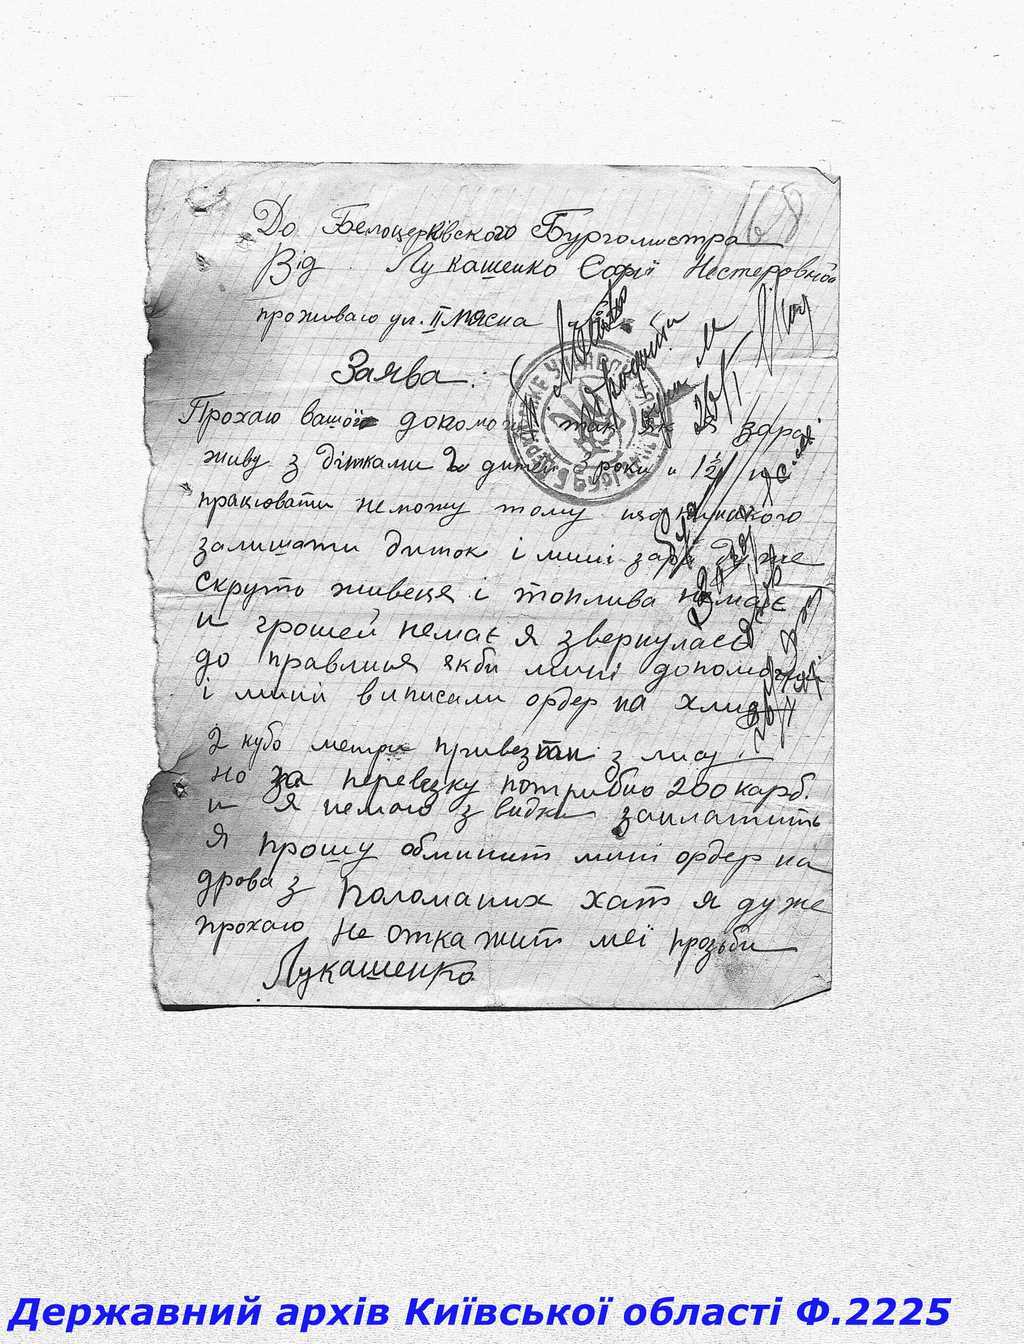 68
До Белоцерківского Бургомистра
Від Лукашенко Софії Нестеровной
проживаю ул. II Мясна
Заява.
Прохаю вашої допомоги так як я зара
живу з дітками 2 дитей 3 роки и 1½
працювати неможу тому що нинакого
залишати диток і мині зара дуже
скрутно живеця і топлива немає
и грошей немає я звернулась
до правлиня якби мині допомогли
і мині виписали ордер на хлиб
2 кубо метри привезти з лису.
но за перевезку потрибно 200 карб.
и я немаю з видки заплатить
Я прошу обминит мині ордер на
дрова з поломаних хат я дуже
прохаю не откажит меі прозьби
Лукашенко
Державний архів Київської області Ф.2225